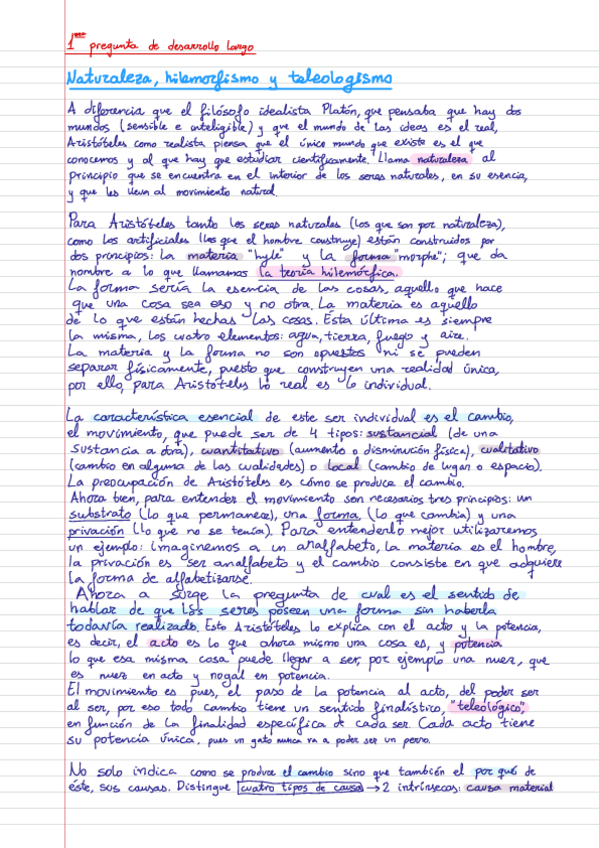 1era pregunta de desarrollo largo
Naturaleza, hilemorfismo y teleologismo
A diferencia que el filósofo idealista Platón, que pensaba que hay dos
mundos (sensible e inteligible) y que el mundo de las ideas es el real,
Aristóteles como realista piensa que el único mundo que existe es el que
conocemos y al que hay que estudiar científicamente. Llama naturaleza al
principio que se encuentra en el interior de los seres naturales, en su esencia,
y que les lleva al movimiento natural.
Para Aristóteles tanto los seres naturales (los que son por naturaleza),
como los artificiales (los que el hombre construye) están construidos por
dos principios: la materia "hyle" y la forma "morphe"; que da
nombre a lo que llamamos la teoría hilemórfica.
La forma sería la esencia de las cosas, aquello que hace
que una cosa sea eso y no otra. La materia es aquello
de lo que están hechas las cosas. Esta última es siempre
la misma, los cuatro elementos: agua, tierra, fuego y aire.
La materia y la forma no son opuestos ni se pueden
separar físicamente, puesto que construyen una realidad única,
por ello, para Aristóteles lo real es lo individual.
La característica esencial de este ser individual es el cambio,
el movimiento, que puede ser de 4 tipos: sustancial (de una
sustancia a otra), cuantitativo (aumento o disminución física), cualitativo
(cambio en alguna de las cualidades) o local (cambio de lugar o espacio).
La preocupación de Aristóteles es cómo se produce el cambio.
Ahora bien, para entender el movimiento son necesarios tres principios: un
substrato (lo que permanece), una forma (lo que cambia) y una
privación (lo que no se tenía). Para entenderlo mejor utilizaremos
un ejemplo: imaginemos a un analfabeto, la materia es el hombre,
la privación es ser analfabeto y el cambio consiste en que adquiere
la forma de alfabetizarse.
Ahora a surge la pregunta de cual es el sentido de
hablar de que los seres poseen una forma sin haberla
todavía realizado. Esto Aristóteles lo explica con el acto y la potencia,
es decir, el acto es lo que ahora mismo una cosa es, y potencia
lo que esa misma cosa puede llegar a ser, por ejemplo una nuez, que
es nuez en acto y nogal en potencia.
El movimiento es pues, el paso de la potencia al acto, del poder ser
al ser, por eso todo cambio tiene un sentido finalístico, "teleológico",
en función de la finalidad específica de cada ser. Cada acto tiene
su potencia única, pues un gato nunca va a poder ser un perro.
No solo indica como se produce el cambio sino que también el por qué de
éste, sus causas. Distingue cuatro tipos de causa → 2 intrínsecas: causa material